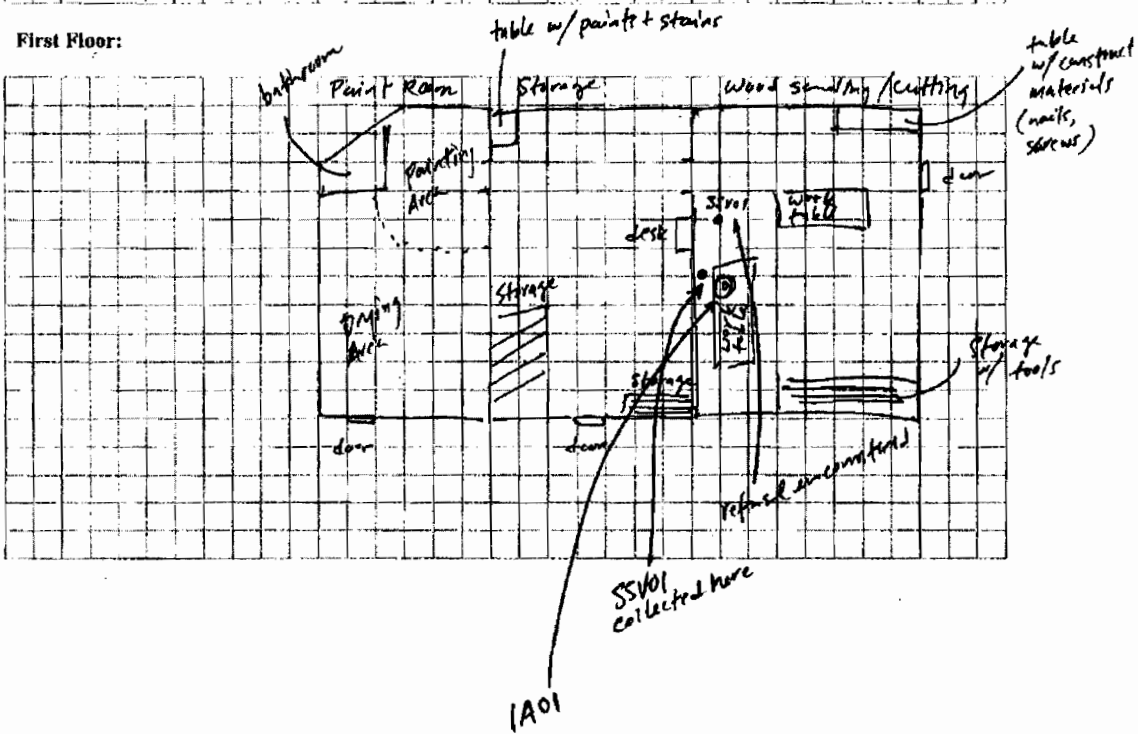 First Floor:
table w/ paints + stains
table
w/ construct
materials
(nails,
screws)
bathroom
Paint Room
Storage
Wood sanding / cutting
Painting
Area
door
SSV01
work
table
desk
Storage
Drying
Area
work
table
Storage
w/ tools
Storage
door
door
refusal encountered
SSV01
collected here
IA01